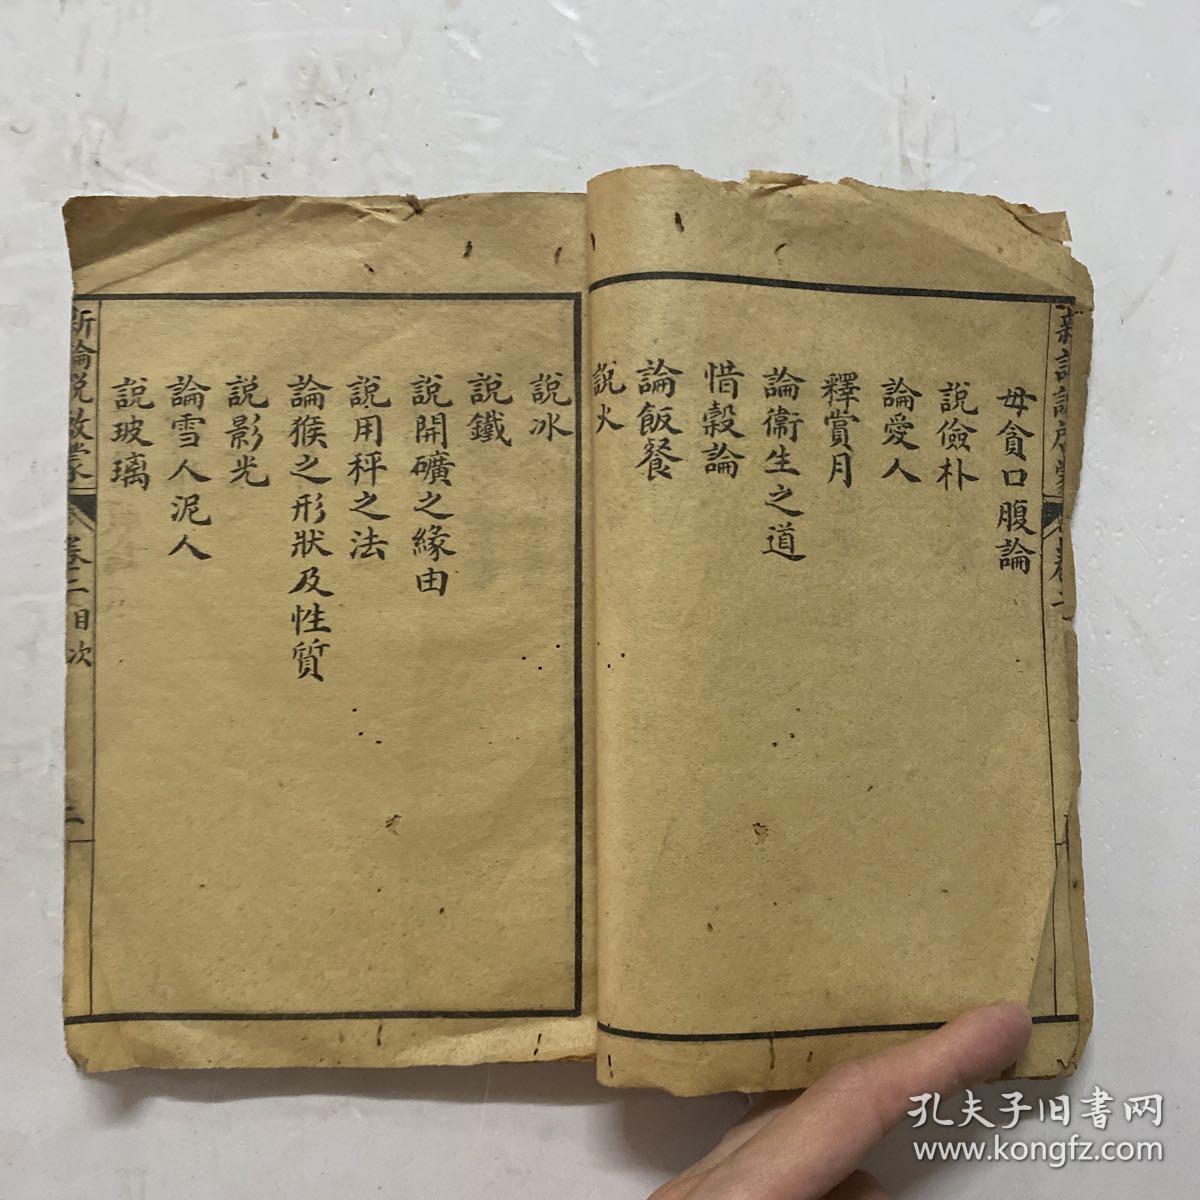 毋貪口腹論
說儉朴
論愛人
釋賞月
論衞生之道
惜穀論
論飯餐
說火
說冰
說鐵
說開礦之緣由
說用秤之法
論猴之形狀及性質
說影光
論雪人泥人
說玻璃
新論說啟蒙
卷二目次
二
孔夫子旧书网
www.kongfz.com